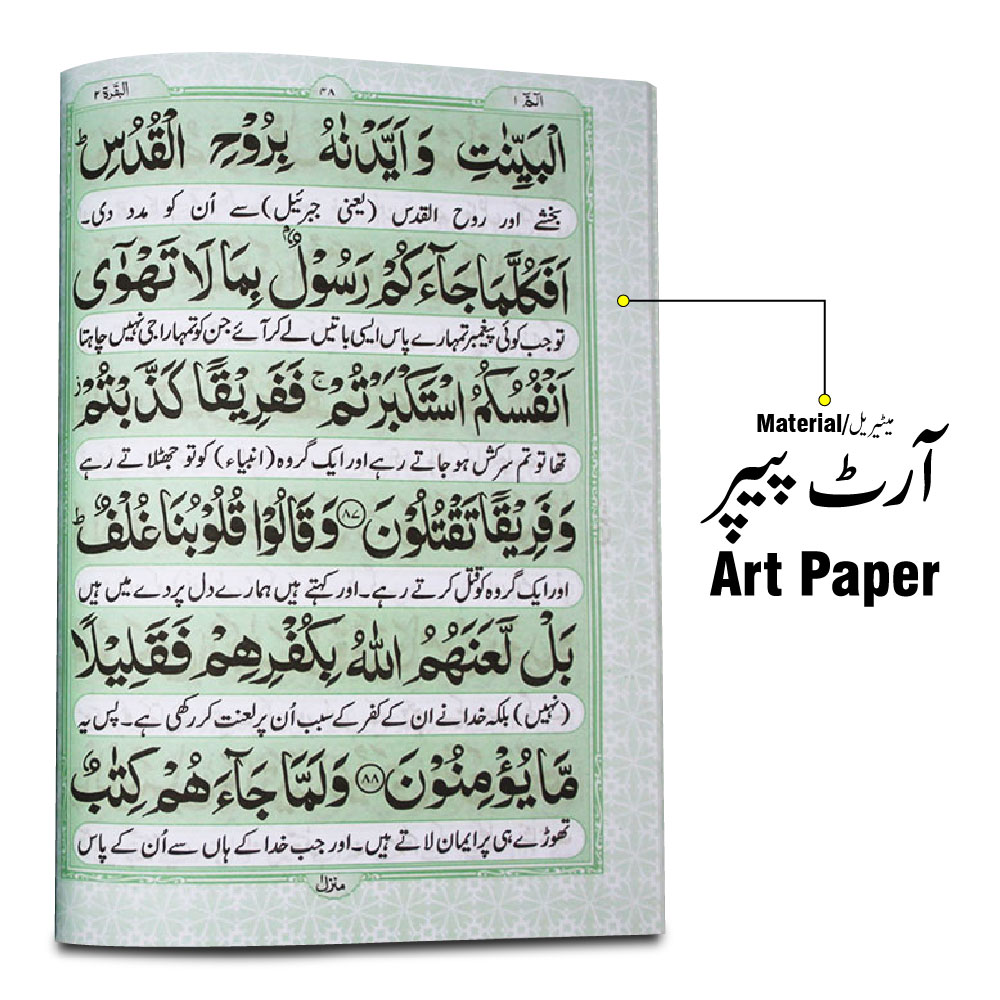 البقرة ۲
۴۸
الٓمّٓ ۱
الْبَيِّنٰتِ وَاَيَّدْنٰهُ بِرُوْحِ الْقُدُسِؕ
بخشے اور روح القدس (یعنی جبرئیل) سے اُن کو مدد دی۔
اَفَكُلَّمَا جَآءَكُمْ رَسُوْلٌۢ بِمَا لَا تَهْوٰٓى
تو جب کوئی پیغمبر تمہارے پاس ایسی باتیں لے کر آئے جن کو تمہارا جی نہیں چاہتا
اَنْفُسُكُمُ اسْتَكْبَرْتُمْۚ فَفَرِيْقًا كَذَّبْتُمْؗ
تھا تو تم سرکش ہو جاتے رہے اور ایک گروہ (انبیاء) کو تو جھٹلاتے رہے
وَفَرِيْقًا تَقْتُلُوْنَ ۸۷ وَقَالُوْا قُلُوْبُنَا غُلْفٌؕ
اور ایک گروہ کو قتل کرتے رہے۔ اور کہتے ہیں ہمارے دل پردے میں ہیں
بَلْ لَّعَنَهُمُ اللّٰهُ بِكُفْرِهِمْ فَقَلِيْلًا
(نہیں) بلکہ خدا نے ان کے کفر کے سبب اُن پر لعنت کر رکھی ہے۔ پس یہ
مَّا يُؤْمِنُوْنَ ۸۸ وَلَمَّا جَآءَهُمْ كِتٰبٌ
تھوڑے ہی پر ایمان لاتے ہیں۔ اور جب خدا کے ہاں سے اُن کے پاس
منزل ۱
Material/میٹیریل
آرٹ پیپر
Art Paper